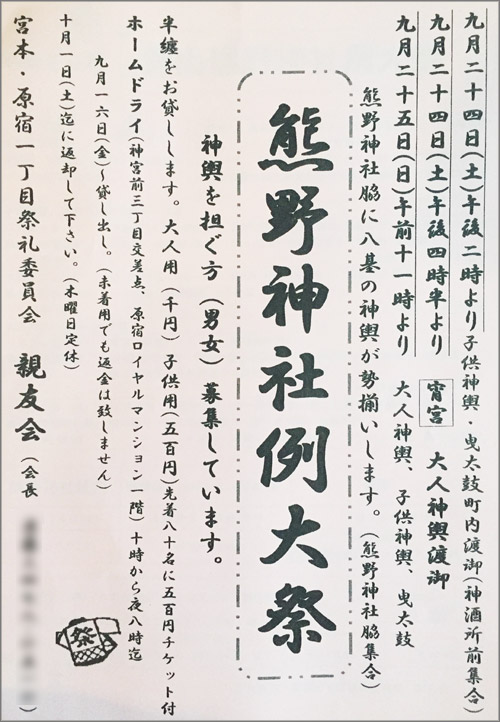 九月二十四日(土)午後二時より子供神輿・曳太鼓町内渡御(神酒所前集合)
九月二十四日(土)午後四時半より 宵宮 大人神輿渡御
九月二十五日(日)午前十一時より 大人神輿、子供神輿、曳太鼓
熊野神社脇に八基の神輿が勢揃いします。(熊野神社脇集合)
熊野神社例大祭
神輿を担ぐ方(男女)募集しています。
半纏をお貸しします。大人用(千円)子供用(五百円)先着八十名に五百円チケット付
ホームドライ(神宮前三丁目交差点、原宿ロイヤルマンション一階)十時から夜八時迄
九月一六日(金)〜貸し出し。(未着用でも返金は致しません)
十月一日(土)迄に返却して下さい。(木曜日定休)
宮本・原宿一丁目祭礼委員会 親友会(会長 )
祭